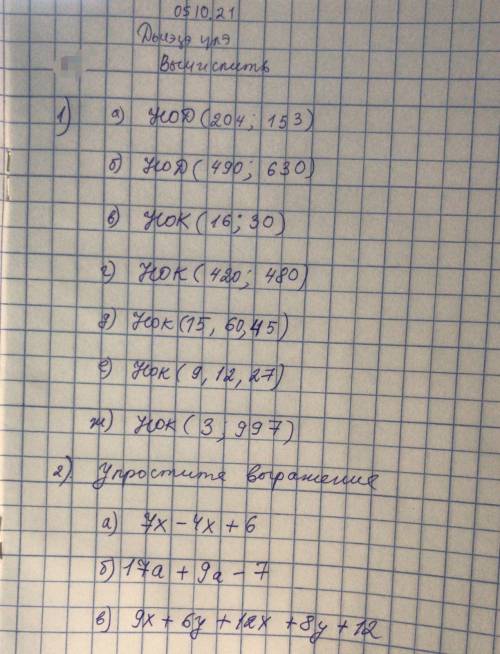 05.10.21
Вычислить
1) а) НОД (204; 153)
б) НОД ( 490; 630)
в) НОК (16; 30)
г) НОК (420; 480)
д) НОК (15, 60, 45)
е) НОК ( 9, 12, 27)
ж) НОК ( 3; 997)
2) Упростите выражения
а) 7x - 4x + 6
б) 17a + 9a - 7
в) 9x + 6y + 12x + 8y + 12